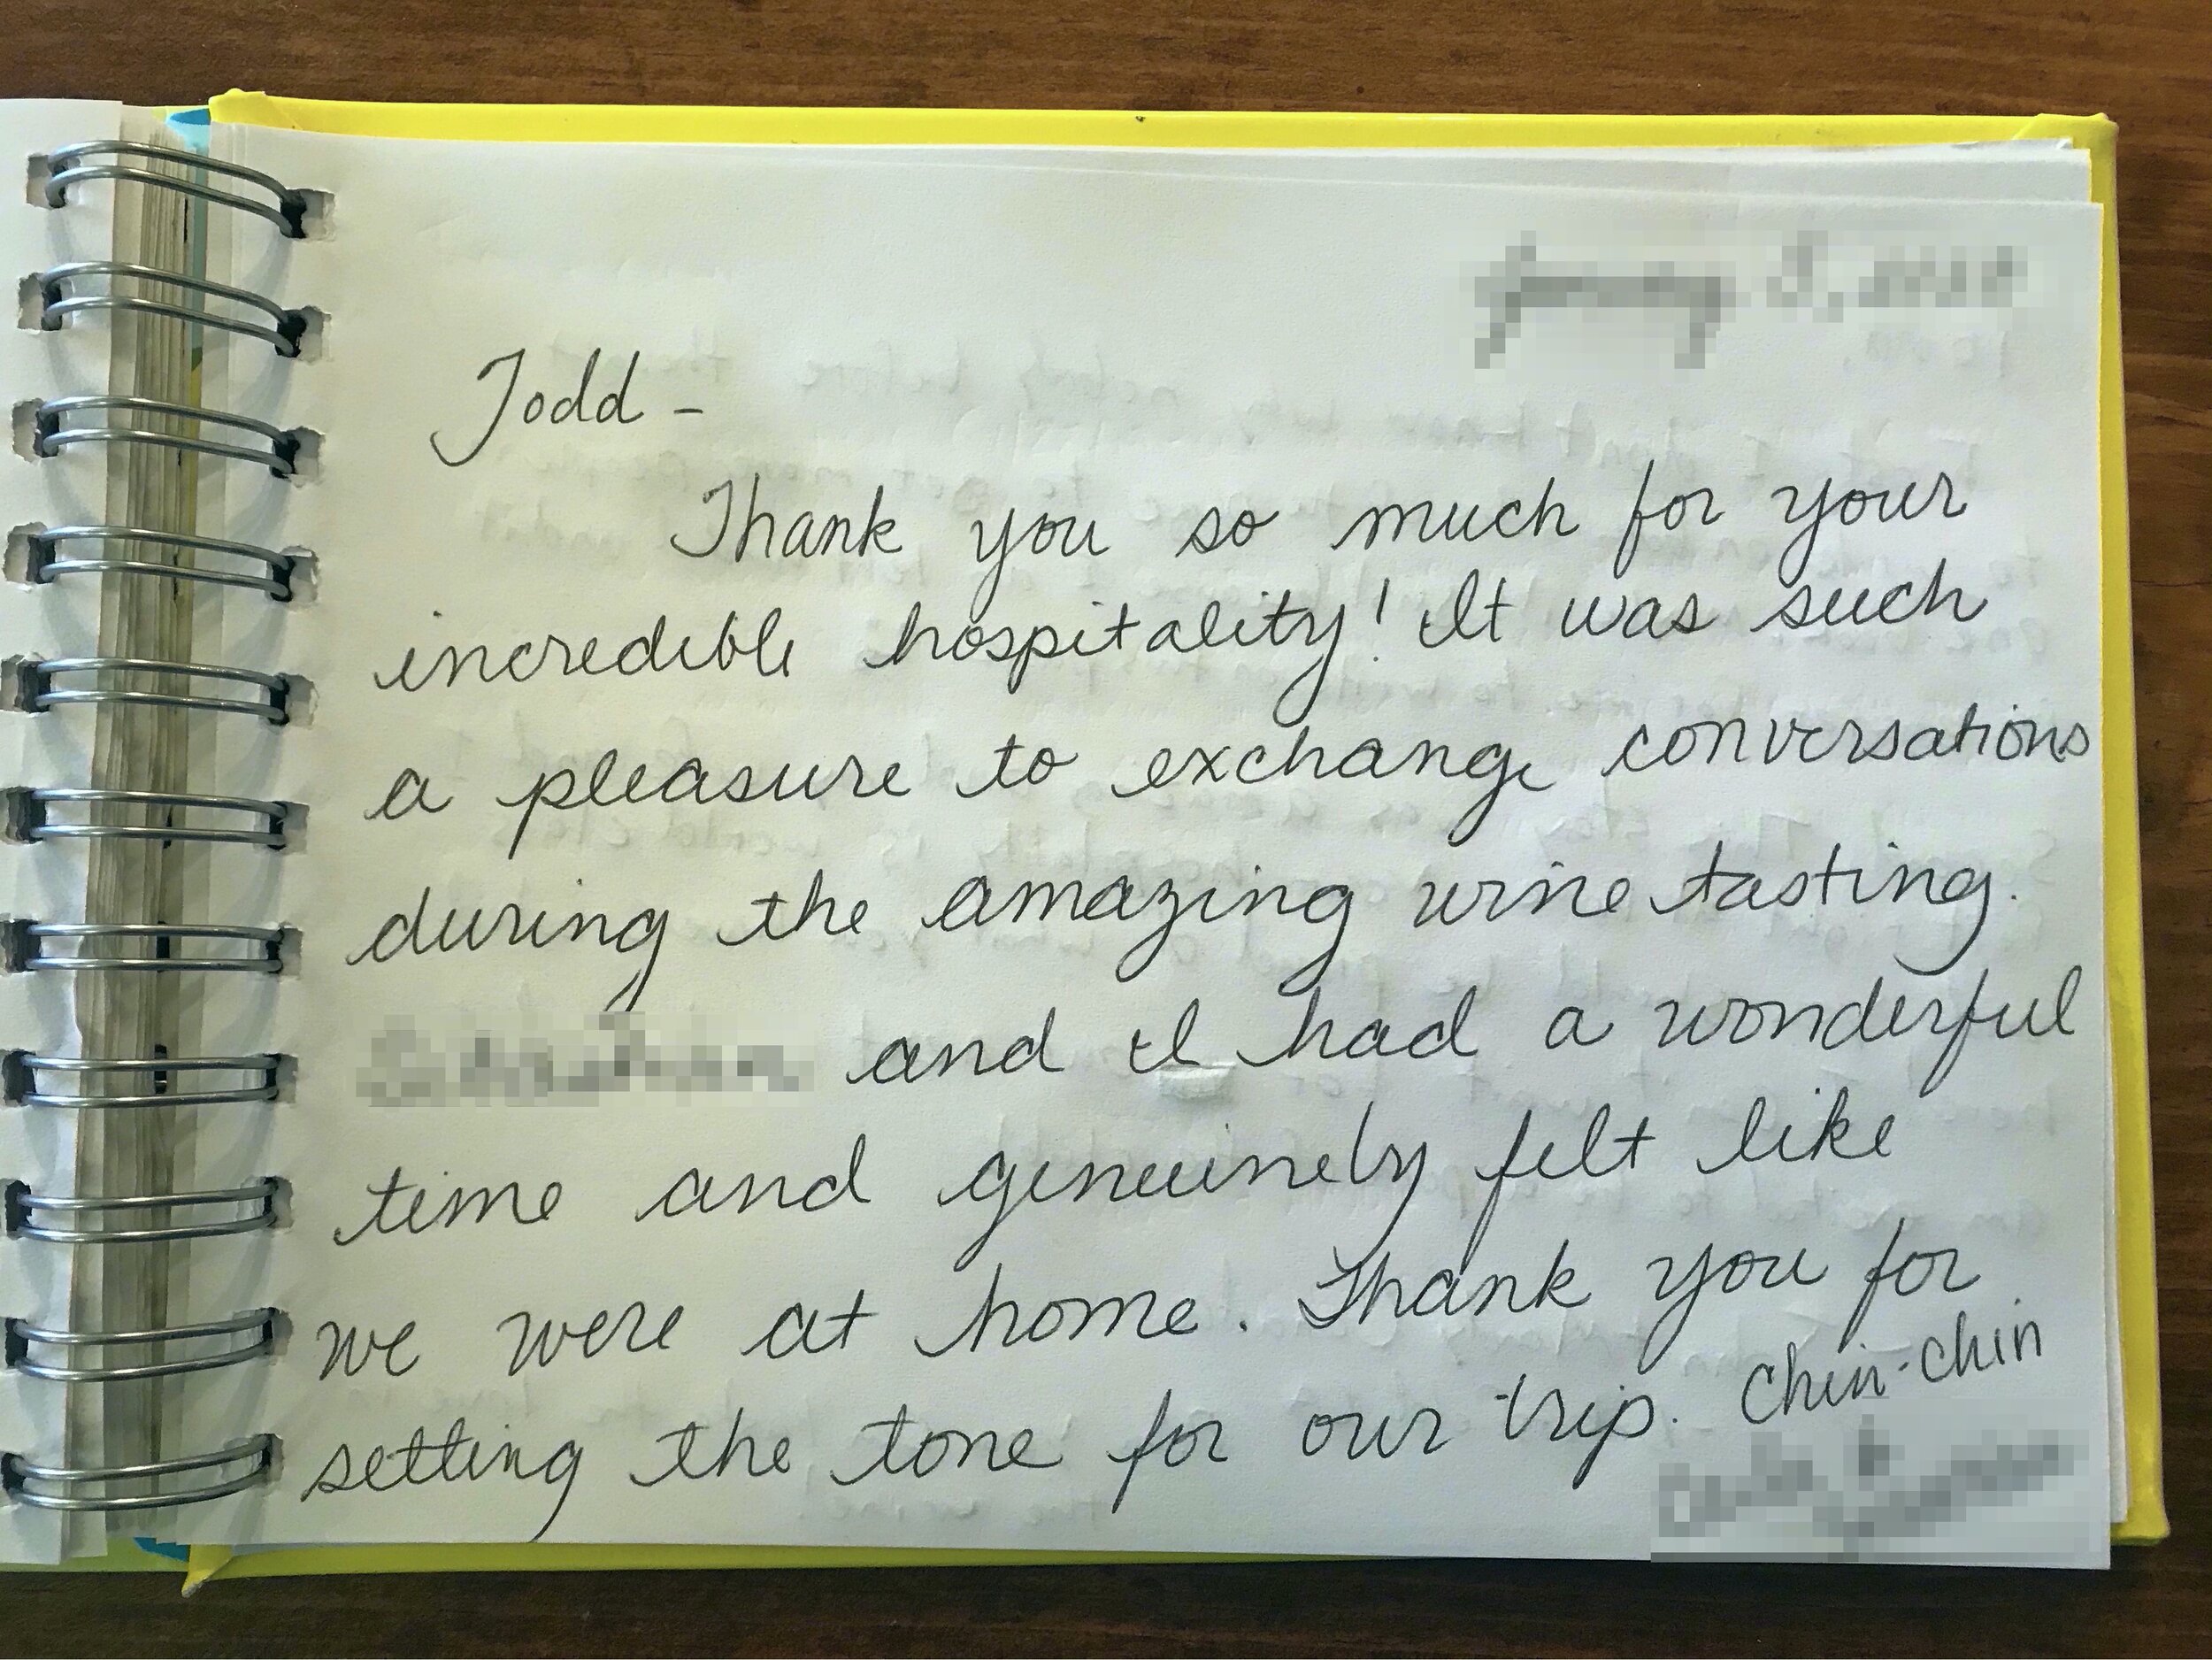 Todd -
Thank you so much for your
incredible hospitality! It was such
a pleasure to exchange conversations
during the amazing wine tasting.
and I had a wonderful
time and genuinely felt like
we were at home. Thank you for
setting the tone for our trip. Chin-Chin